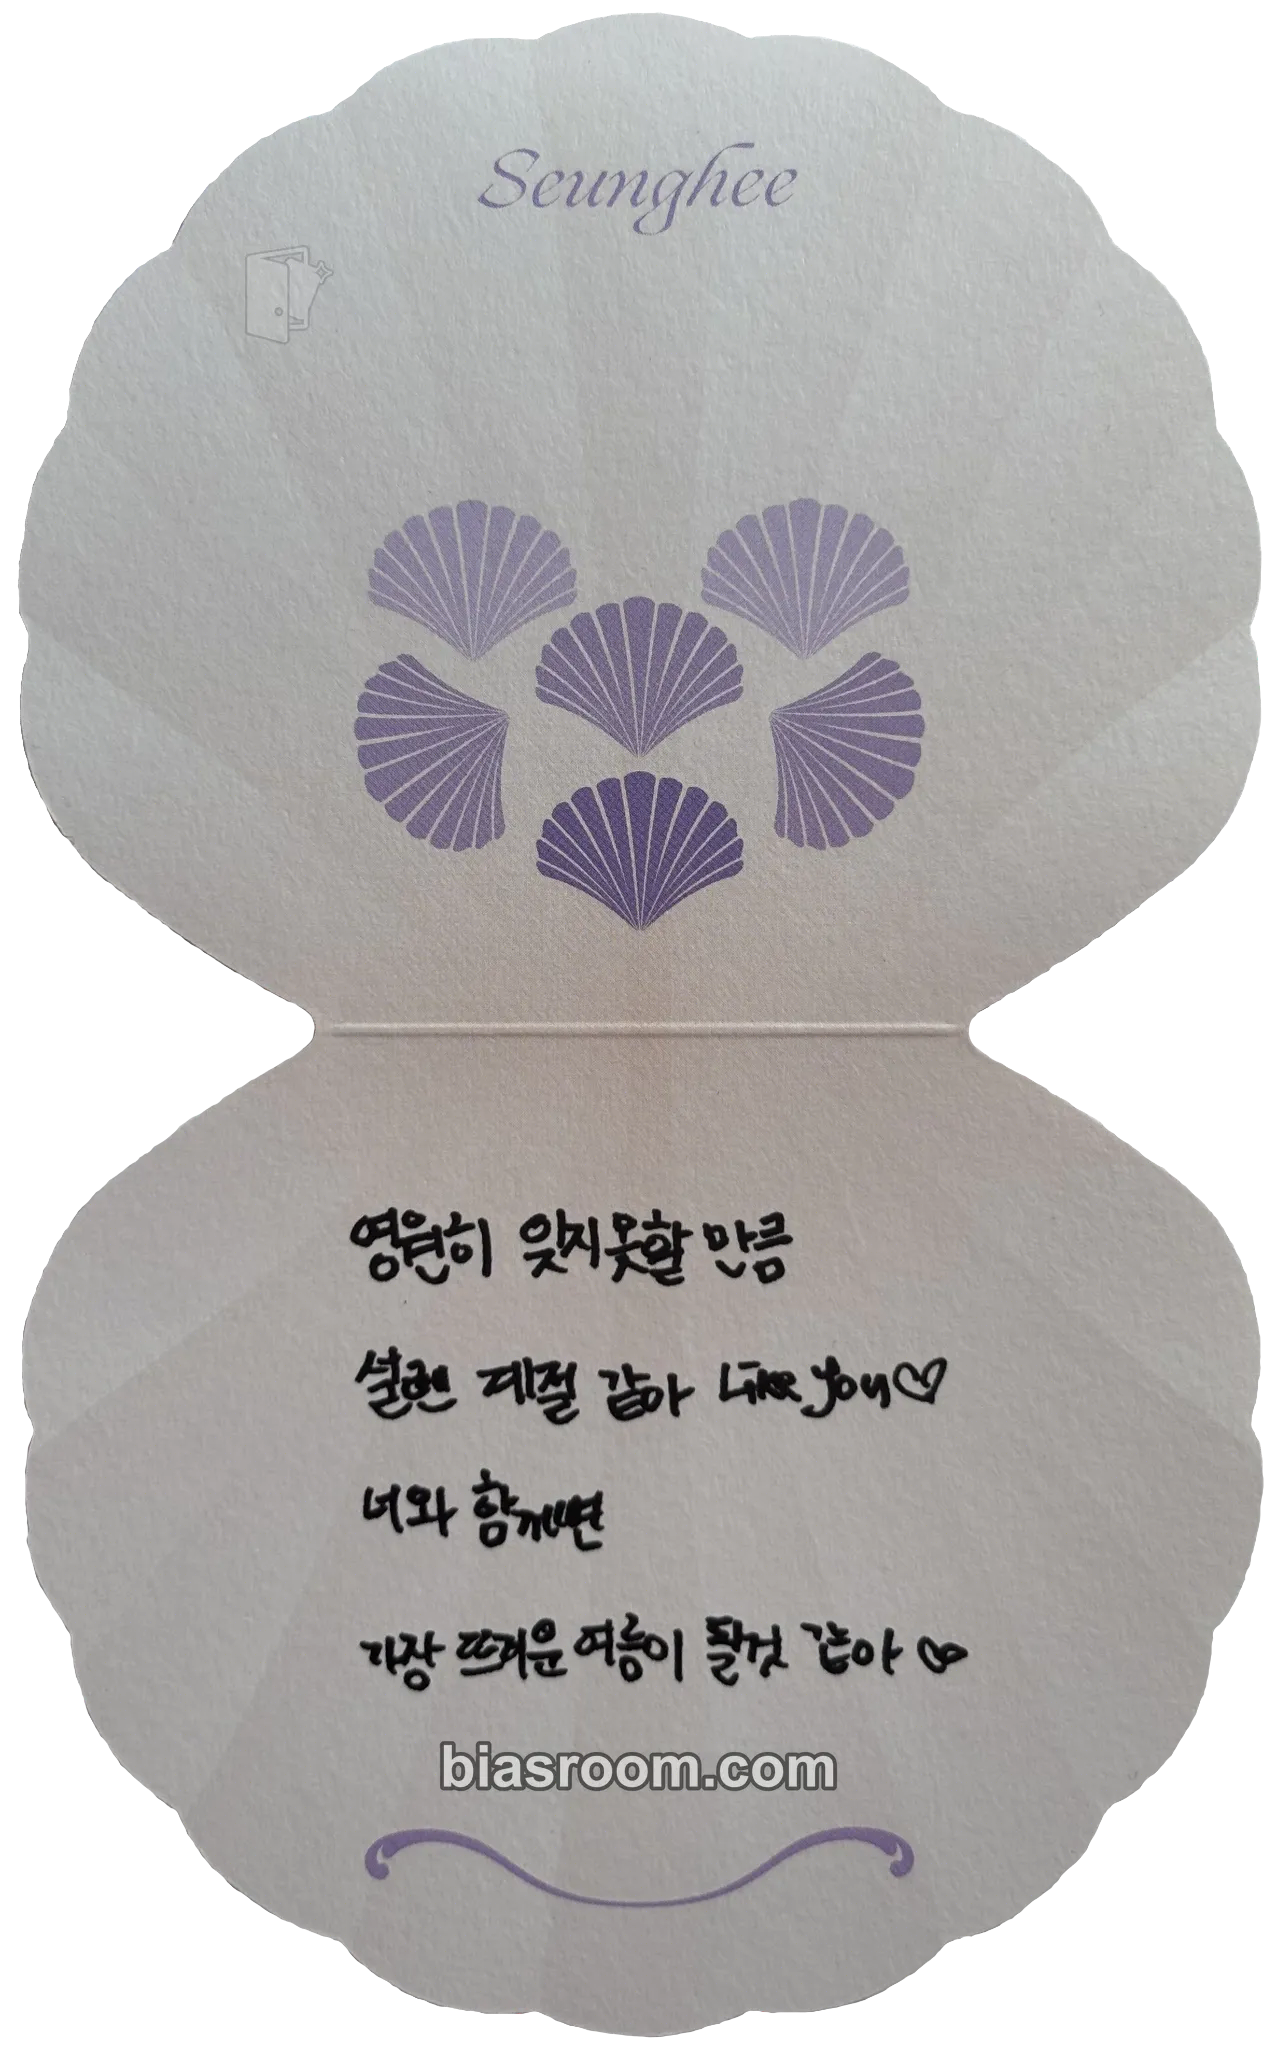 Seunghee
영원히 잊지못할 만큼
설렌 계절 같아 Like you♡
너와 함께면
가장 뜨거운 여름이 될것 같아 ♡
biasroom.com